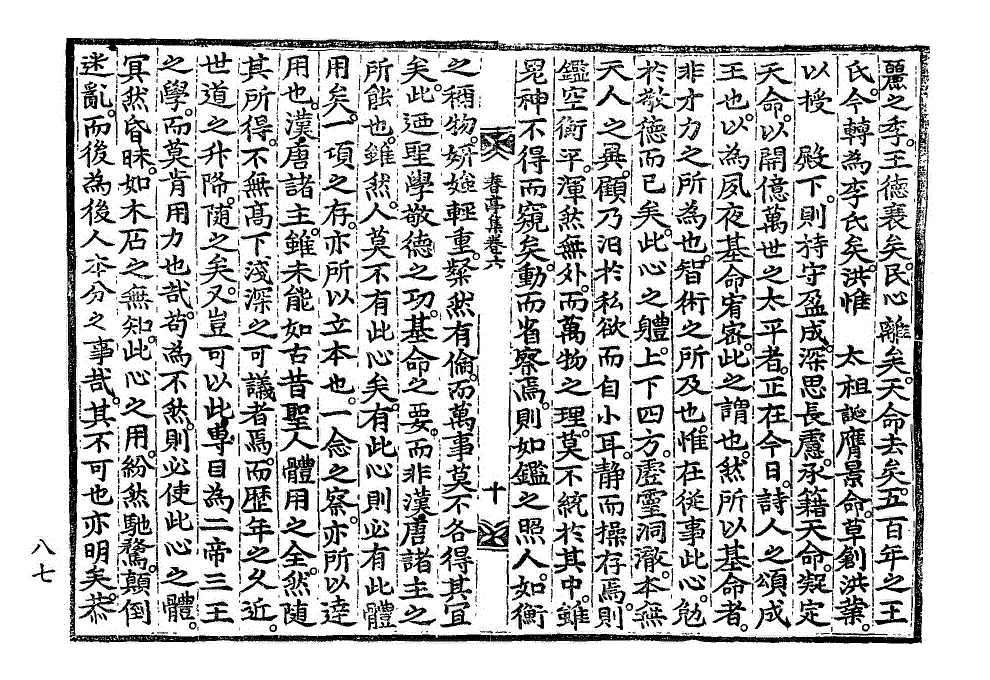 麗之季王德衰矣民心離矣天命去矣五百年之王
氏今轉為李氏矣洪惟　太祖誕膺景命草創洪業
以授　殿下則持守盈成深思長慮承籍天命凝定
天命以開億萬世之太平者正在今日詩人之頌成
王也以為夙夜基命宥密此之謂也然所以基命者
非才力之所為也智術之所及也惟在從事此心勉
於敬德而已矣此心之體上下四方虛靈洞澈本無
天人之異顧乃汨於私欲而自小耳靜而操存焉則
鑑空衡平渾然無外而萬物之理莫不統於其中雖
鬼神不得而窺矣動而省察焉則如鑑之照人如衡
春亭集卷六　十
之稱物姸媸輕重粲然有倫而萬事莫不各得其宜
矣此迺聖學敬德之功基命之要而非漢唐諸主之
所能也雖然人莫不有此心矣有此心則必有此體
用矣一項之存亦所以立本也一念之察亦所以達
用也漢唐諸主雖未能如古昔聖人體用之全然隨
其所得不無高下淺深之可議者焉而歷年之久近
世道之升降隨之矣又豈可以此專目為二帝三王
之學而莫肯用力也哉苟為不然則必使此心之體
冥然昏昧如木石之無知此心之用紛然馳騖顛倒
迷亂而後為後人本分之事哉其不可也亦明矣恭
八七